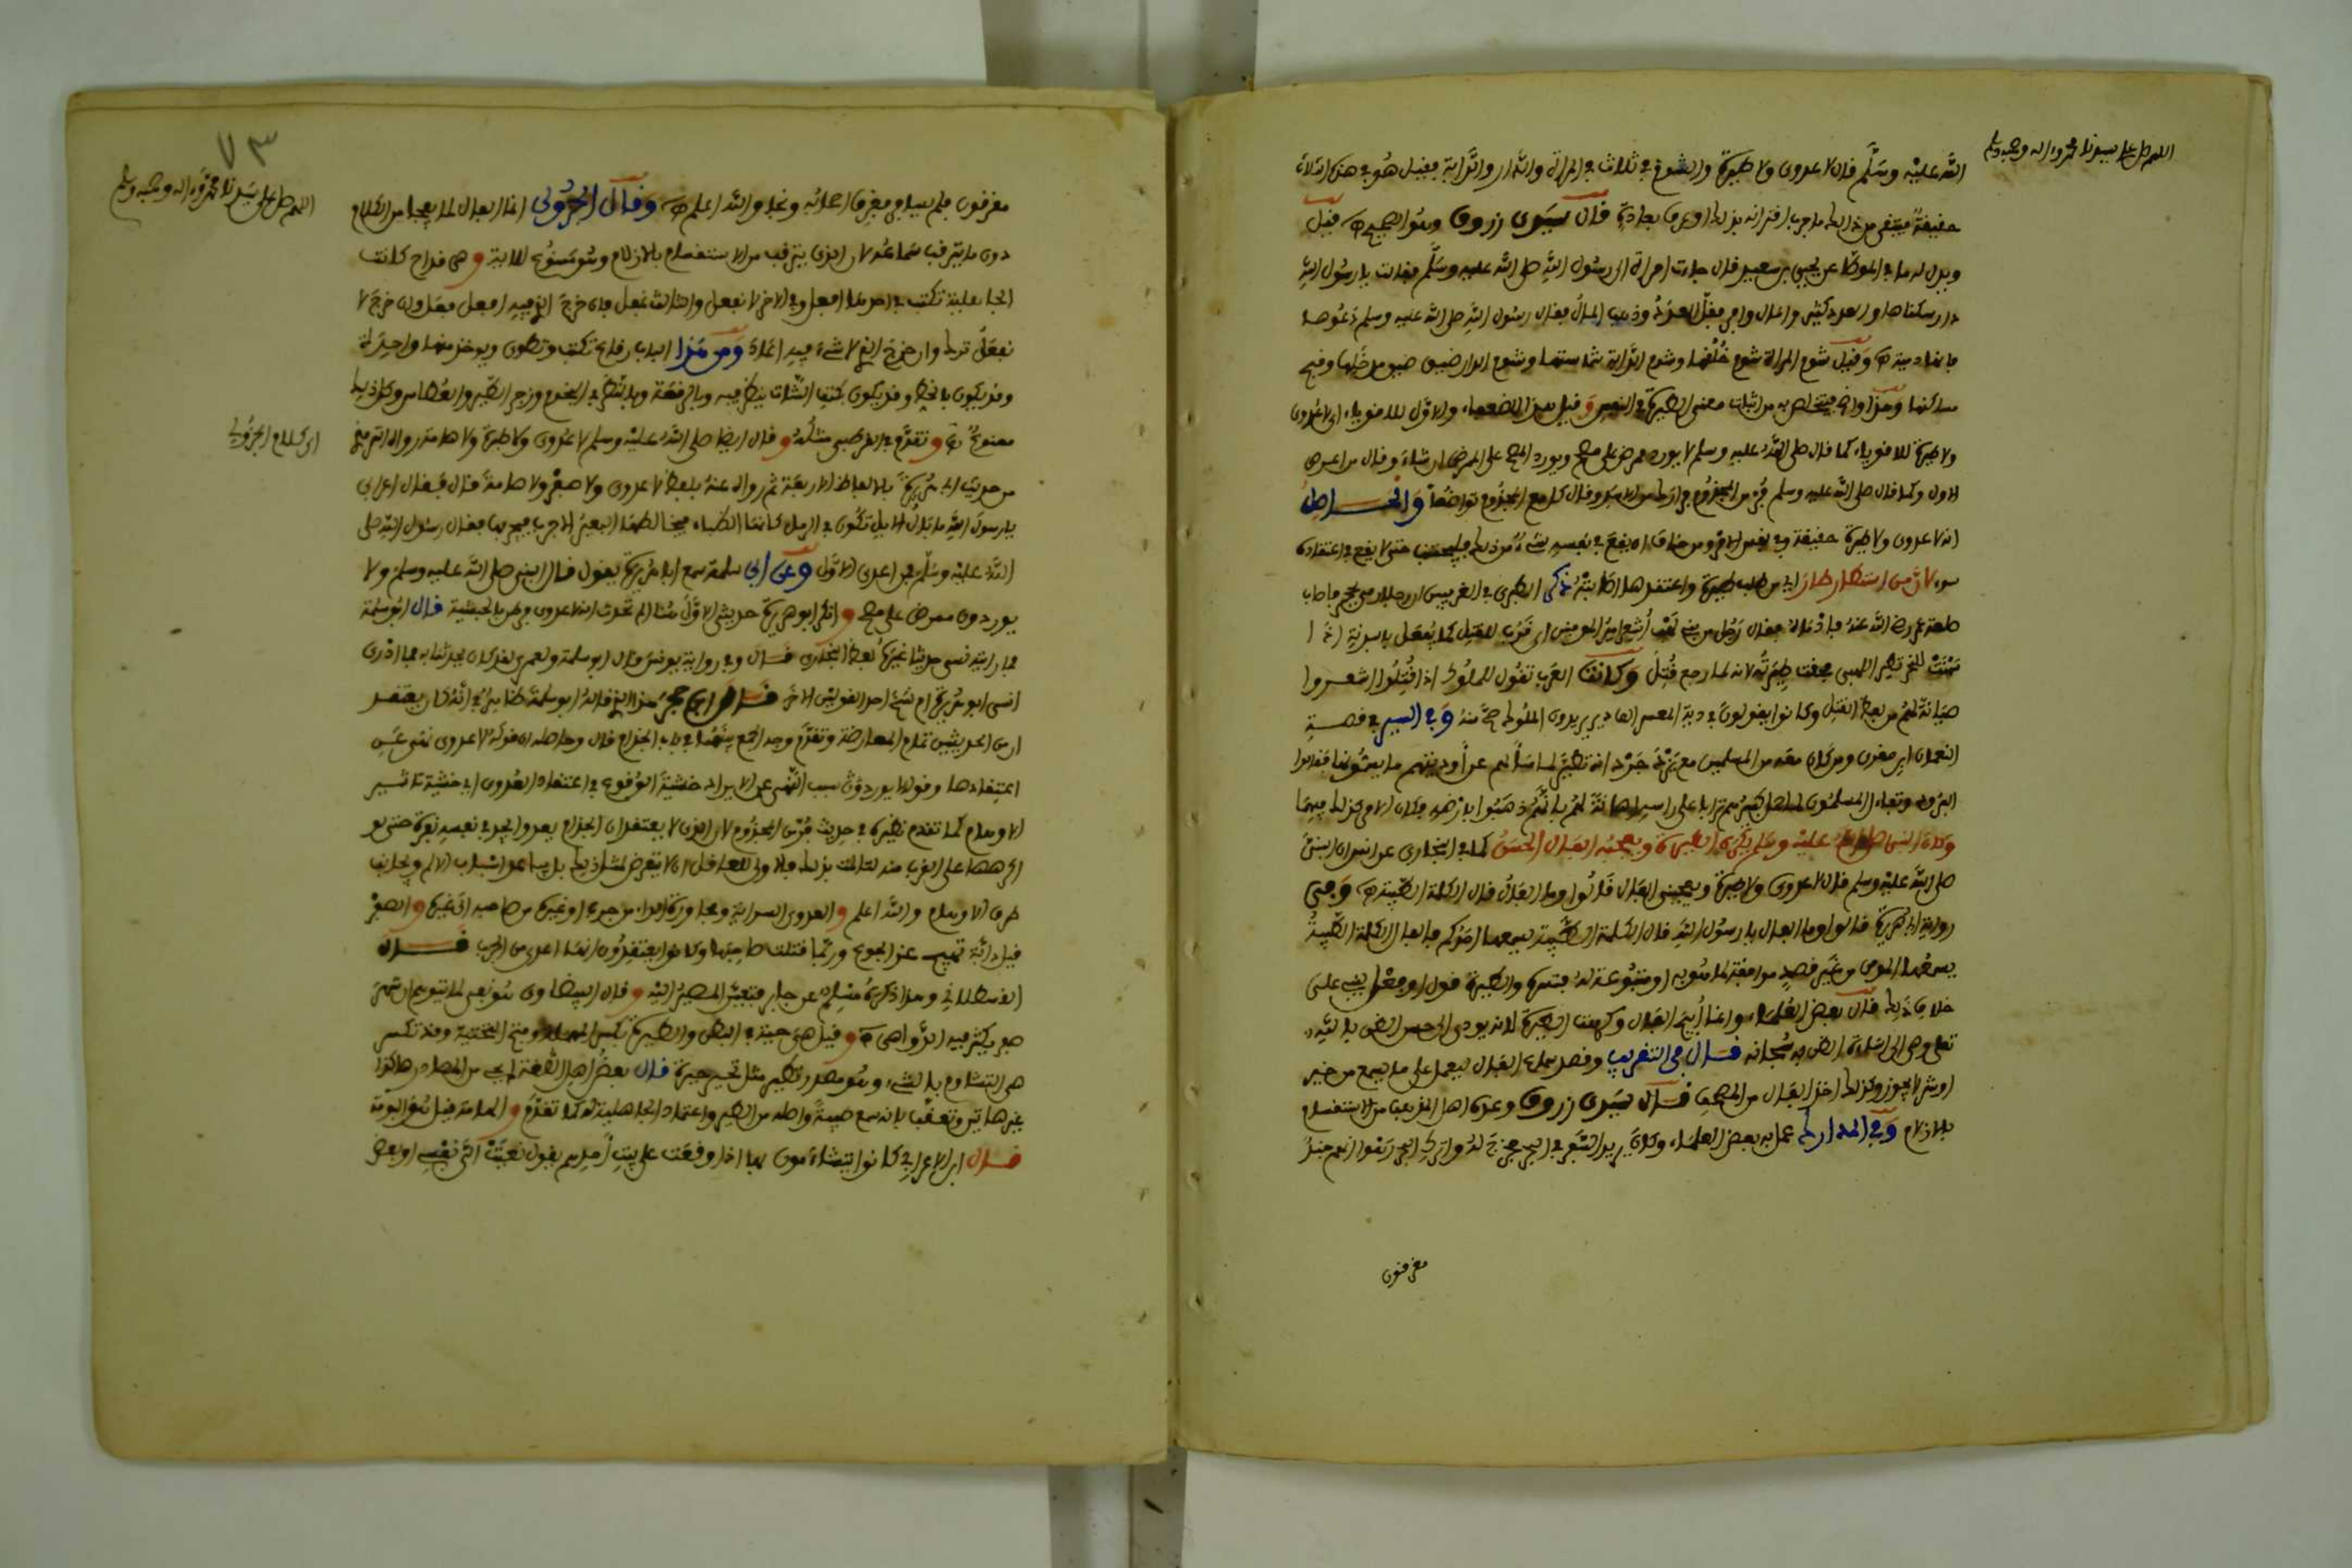 اللهم صل على سيدنا محمد وءاله وصحبه وسلم
الله عليه وسلم قال لا عدوى ولا طيرة والشوم في ثلاث في المرأة والدار والدابة فقيل هو في هذه الثلاث
حقيقة فيتقى من ذلك ما جرب اقترانه بذلك او عرف بعادة قال سيدي زروق وهو الصحيح فقيل
ويدل له ما في الموطأ عن يحيى بن سعيد قال جاءت امرأة الى رسول الله صلى الله عليه وسلم فقالت يا رسول الله
دار سكناها والعدد كثير والمال وافر فقل العدد وذهب المال فقال رسول الله صلى الله عليه وسلم دعوها
فانها ذميمة وقيل شوم المرأة شوم خلقها وشوم الدابة شماستها وشوم الدار ضيق وقبح
ساكنها وهذا معنى الطيرة في النفس وقيل هذا للضعفاء والاول للاقوياء اي لا عدوى
ولا طيرة للاقوياء كما قال صلى الله عليه وسلم لا يورد ممرض على مصح ويورد المصح على الممرض ان شاء وقال من اعدى
الاول وكما قال صلى الله عليه وسلم فر من المجذوم فرارك من الاسد وقال كل مع المجذوم تواضعا والحاصل
انه لا عدوى ولا طيرة حقيقة في نفس الامر ومن خاف ان يقع في نفسه شيء من ذلك فليجتنب حتى لا يقع في اعتقاده
سوء لان من استطار طار اي من طلب طيرة واعتقدها اصابته ذكر الطبري
طعنه عمر رضي الله عنه فادماه فقال رجل من بني لهب أشعر امير المومنين اي قرب للقتل كما يفعل بالبدنة اذا
سيقت للنحر تطير اللهبي فحقت طيرته لانه لما رجع قتل وكانت العرب تقول للملوك اذا قتلوا اشعروا
صيانة لهم من لفظ القتل وكانوا يقولون في دية المشعر الف بعير يريدون الملوك منه وفي السير في قصة
النعمان ابن مقرن ومن كان معه من المسلمين مع يزدجرد انه تطير لما سألهم عن أرديتهم
وتفاءل المسلمون بأنهم ذهبوا بأرضهم فكان الامر كذلك فيهما
وكان النبي صلى الله عليه وسلم يكره الطيرة ويعجبه الفال الحسن كما في البخاري عن انس ان النبي
صلى الله عليه وسلم قال لا عدوى ولا طيرة ويعجبني الفال قالوا وما الفال قال الكلمة الطيبة وفي
رواية ابي هريرة قالوا وما الفال يا رسول الله قال الكلمة الطيبة يسمعها احدكم فالفال الكلمة الطيبة
يسمعها المومن من غير قصد موافقة لما ينويه او منبوعة له فتسره والطيرة قول او فعل يبنى على
خلاف ذلك قال بعض العلماء وانما أبيح الفال وكرهت الطيرة لانه يودي الى حسن الظن بالله
تعلى وهي الى اساءة الظن به سبحانه قال في التقريب وقصد سماع الفال ليعمل على ما يسمع من خير
او شر لا يجوز وكذلك اخذ الفال من المصحف قال سيدي زروق وعده اهل المذهب من الاستقسام
بالازلام وفي المدارك عمل به بعض العلماء وكان يريد السفر في البحر فخرج له واترك البحر رهوا انهم جند
مغرقون
٧٣
اللهم صل على سيدنا محمد وءاله وصحبه وسلم
مغرقون فلم يسافر فغرق اهله ونجا والله اعلم وقال الجزولي انما الفال لما يفجأ من الكلام
دون ما يترقب سماعه لان الذي يترقب من الاستقسام بالازلام وهو ممنوع للاية وهي قداح كانت
الجاهلية تكتب في احدها افعل وفي الاخر لا تفعل والثالث غفل فان خرج الذي فيه افعل فعل وان خرج لا
تفعل ترك وان خرج الذي لا شيء فيه اعاد ومن هذا الباب رقاع تكتب وتطوى ويوخذ منها واحدة
وقد يكون بالخط وقد يكون بكتف الشاة ينظر فيه وبالقرعة وبالنظر في النجوم وزجر الطير والعطاس وكل ذلك
ممنوع وتقدم في القرطبي مثله وقال ايضا صلى الله عليه وسلم لا عدوى ولا طيرة ولا هامة رواه الترمذي
اي كلام الجزولي
من حديث ابي هريرة بالالفاظ الاربعة ثم رواه عنه بلفظ لا عدوى ولا صفر ولا هامة قال فقال اعرابي
يا رسول الله ما بال الابل تكون في الرمل كانها الظباء فيخالطها البعير الاجرب فيجربها فقال رسول الله صلى
الله عليه وسلم فمن اعدى الاول وعن ابي سلمة سمع ابا هريرة يقول قال النبي صلى الله عليه وسلم ولا
يوردن ممرض على مصح وانكر ابو هريرة حديث الاول قلنا الم تحدث انه لا عدوى فرطن بالحبشية قال ابو سلمة
فما رأيته نسي حديثا غيره لفظ البخاري قال وفي رواية يونس قال ابو سلمة ولعمري لقد كان يحدثنا به فما ادري
انسي ابو هريرة ام نسخ احد القولين الاخر قال ابن حجر هذا الذي قاله ابو سلمة ظاهر في انه كان يعتقد
ان بين الحديثين تمام المعارضة وتقدم وجه الجمع بينهما في باب الجذام قال وحاصله ان قوله لا عدوى نهي عن
اعتقادها وقوله لا يوردن سبب النهي عن الايراد خشية الوقوع في اعتقاد العدوى او خشية تاثير
الاوهام كما تقدم نظيره في حديث فر من المجذوم لان الذي لا يعتقد ان الجذام يعدي يجد في نفسه نفرة حتى لو
اكرهها على القرب منه لتالمت بذلك فالاولى للعاقل ان لا يتعرض لمثل ذلك بل يباعد اسباب الالم ويجانب
طرق الاوهام والله اعلم والعدوى السراية ومجاوزة الداء من جرب او غيره من صاحبه الى غيره والصفر
قيل دابة تهيج عند الجوع وربما قتلت صاحبها وكانوا يعتقدون انها اعدى من الجرب قال
القسطلاني وهذا ذكره مسلم عن جابر فتعين المصير اليه وقال البيضاوي هو نفي لما يتوهم ان شهر
صفر يكثر فيه الدواهي وقيل هي حية في البطن والطيرة بكسر المهملة وفتح التحتية وقد تسكن
هي التشاوم بالشيء وهو مصدر تطير مثل تحير حيرة قال بعض اهل اللغة لم يجئ من المصادر هاكذا
غير هاتين وتعقب بانه سمع طيبة واصله من الطير واعتماد الجاهلية له كما تقدم والهامة قيل هو البومة
قال ابن الاعرابي كانوا يتشاءمون بها اذا وقعت على بيت أحدهم يقول نعيت الي نفسي او بعض